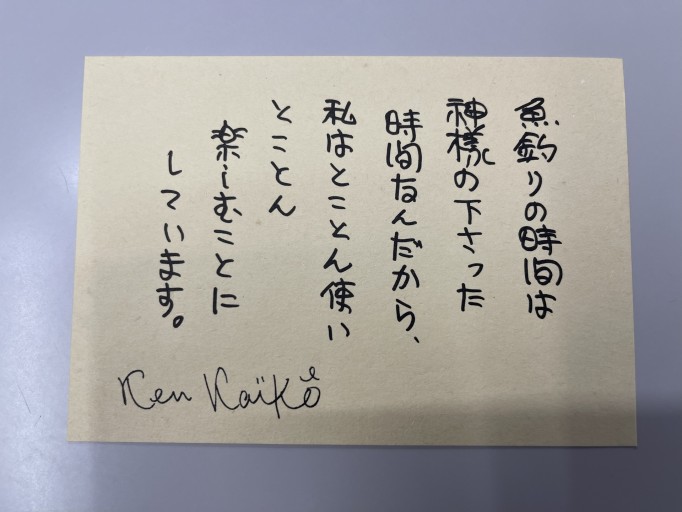 魚釣りの時間は
神様の下さった
時間なんだから、
私はとことん使い
とことん
楽しむことに
しています。
Ken Kaïkô